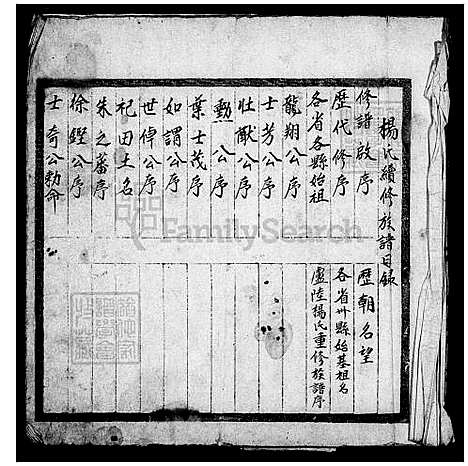 楊氏續修族譜目錄
修譜啟序
歷朝名望
歷代修序
各省州縣始基祖名
各省各縣始祖
盧陸楊氏重修族譜序
龍翔公序
士芳公序
壯猷公序
勳公序
葉士茂序
如謂公序
世倬公序
祀田土名
朱之蕃序
徐鏗公序
士奇公勅命
FamilySearch